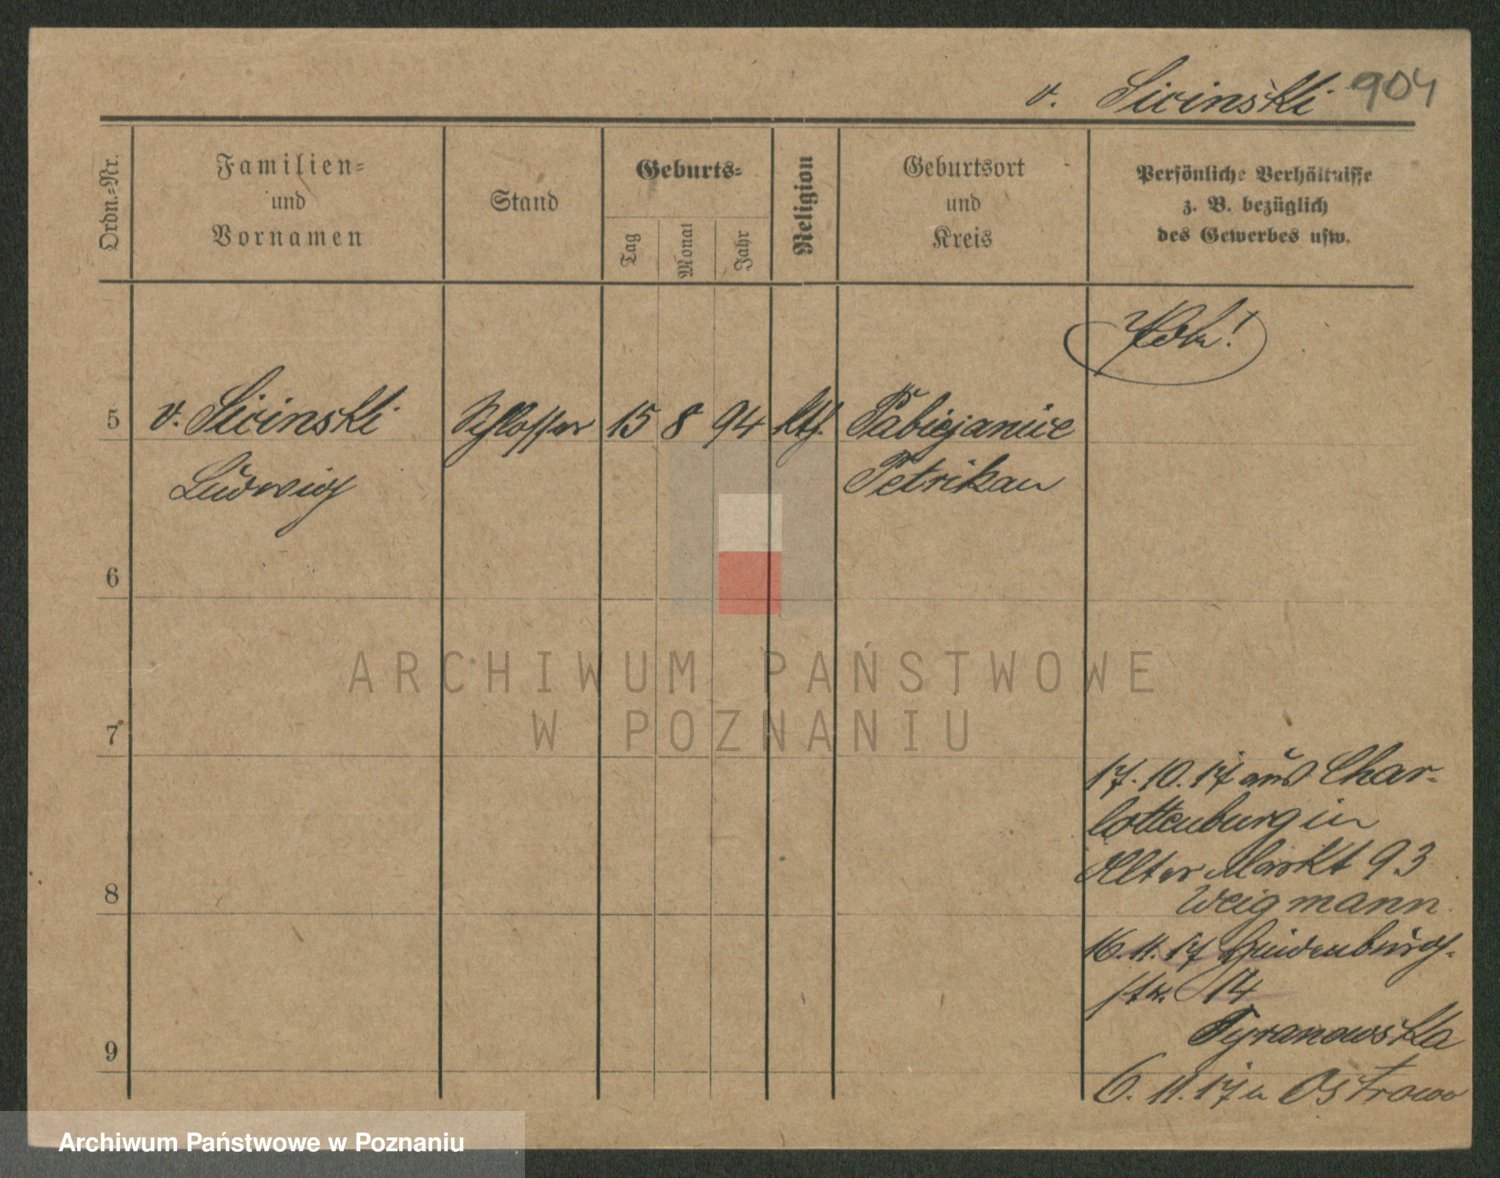 v. Sicinski 904
Ordn.=Nr.
Familien=
und
Vornamen
Stand
Geburts=
Tag
Monat
Jahr
Religion
Geburtsort
und
Kreis
Persönliche Verhältnisse
z. B. bezüglich
des Gewerbes usw.
5 v. Sicinski Schlosser 15 8 94 kth. Pabiejanice
Ludwig Petrikau
6
ARCHIWUM PAŃSTWOWE
W POZNANIU
7
17.10.17 aus Char-
lottenburg in
Alter Markt 93
8
Weigmann
16.11.17
str. 14
Tyranowska
9
6.11.17 n Ostrowo
Archiwum Państwowe w Poznaniu